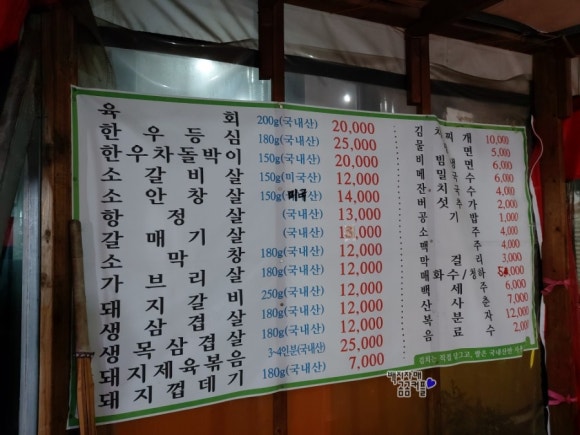 육회 200g(국내산) 20,000
한우등심 180g(국내산) 25,000
한우차돌박이 150g(국내산) 20,000
소갈비살 150g(미국산) 12,000
소안창살 150g(미국) 14,000
항정살 (국내산) 13,000
갈매기살 (국내산)
소막창 180g(국내산) 12,000
가브리살 180g(국내산) 12,000
돼지갈비 250g(국내산) 12,000
생삼겹살 180g(국내산) 12,000
생목삼겹살 180g(국내산) 12,000
돼지제육볶음 3~4인분(국내산) 25,000
돼지껍데기 180g(국내산) 7,000
김치찌개 10,000
물냉면 5,000
비빔냉면 6,000
메밀국수 6,000
잔치국수 4,000
버섯추가 2,000
공기밥 1,000
소주 4,000
맥주 4,000
막걸리 3,000
매화수/청하 5,000
백세주 6,000
산사춘 7,000
복분자 12,000
음료수 2,000
김치는 직접 담그고, 쌀은 국내산만
배지참매
곰곰커플